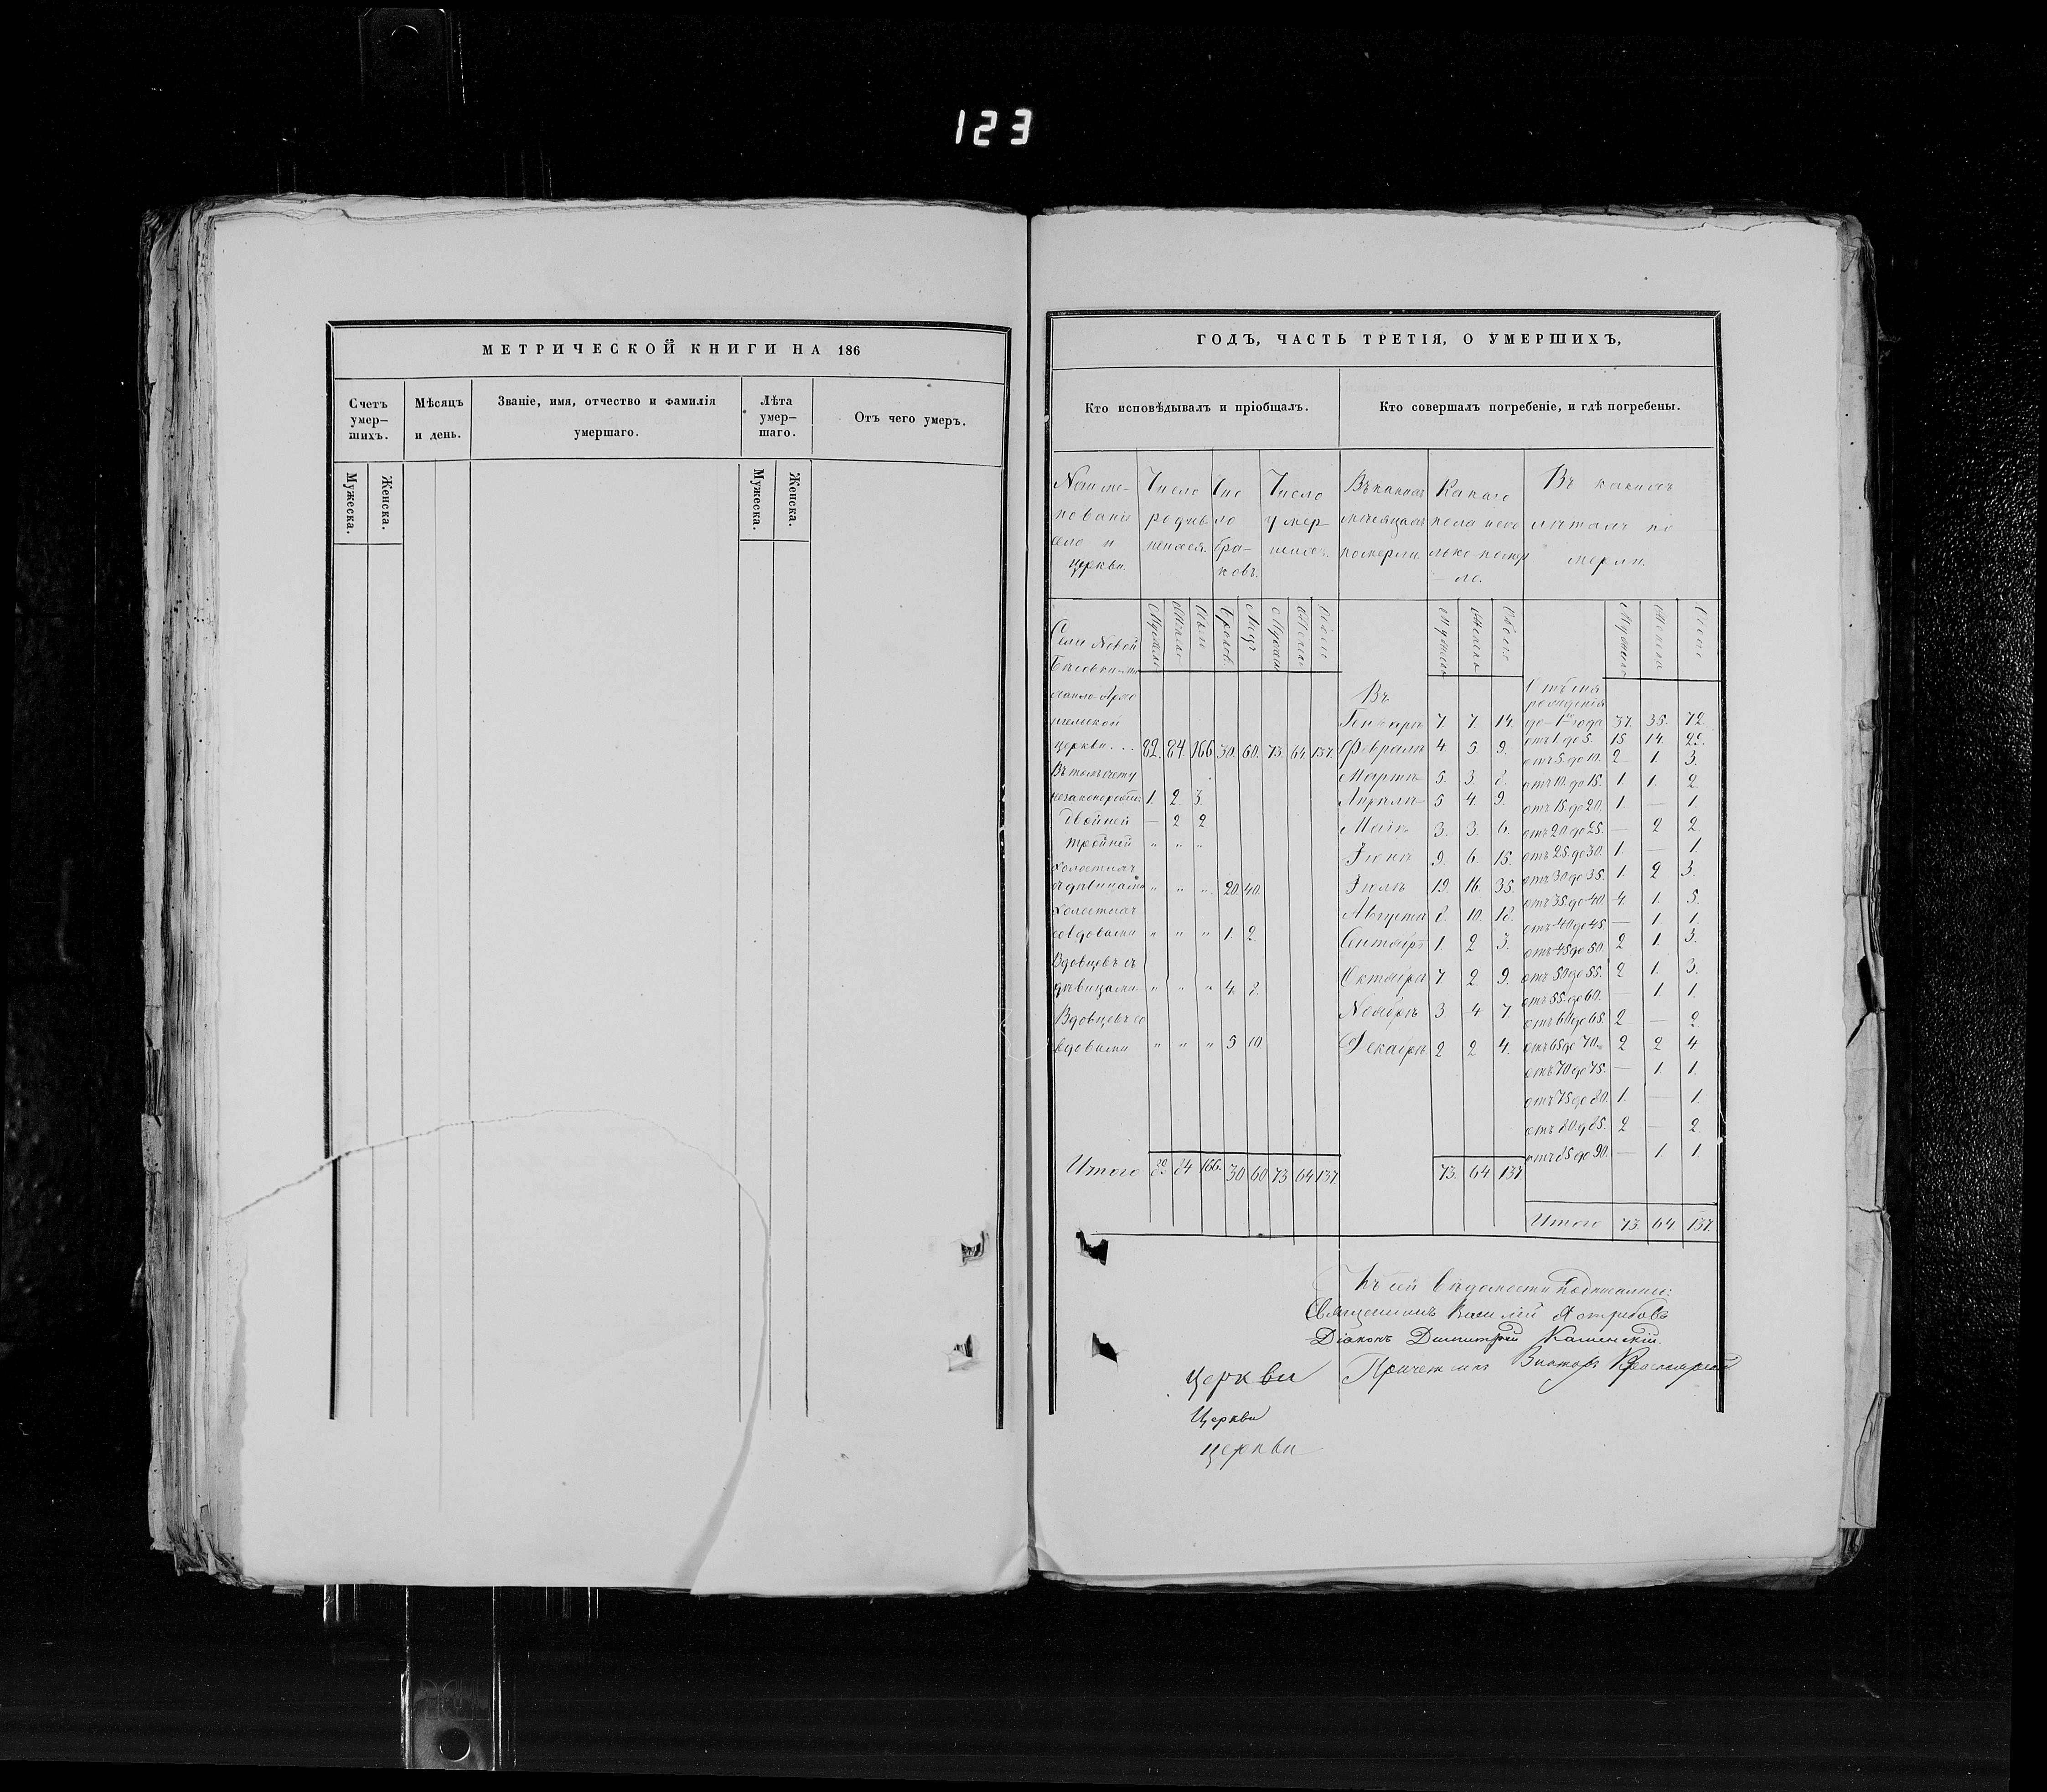 123
МЕТРИЧЕСКОЙ КНИГИ НА 186
Счетъ умер-шихъ.
Мѣсяцъ и день.
Званіе, имя, отчество и фамилія умершаго.
Лѣта умер-шаго.
Отъ чего умеръ.
Мужеска.
Женска.
Мужеска.
Женска.
ГОДЪ, ЧАСТЬ ТРЕТІЯ, О УМЕРШИХЪ,
Кто исповѣдывалъ и пріобщалъ.
Кто совершалъ погребеніе, и гдѣ погребены.
церкви.
Число
Число умер
Въ какихъ
померли.
Села Новой
церкви... 82. 84. 166 30. 60. 73. 64 137.
1. 2. 3.
Двойней — 2 2
тройней " " "
съ дѣвицами " " " 20 40
со вдовами " " " 1. 2.
Вдовцевъ съ
дѣвицами " " " 4. 8.
Вдовцевъ со
вдовами " " " 5 10
Итого 82 84 166. 30 60 73 64 137
Въ
Генварѣ 7. 7. 14.
Февралѣ 4. 5 9.
Мартѣ 5. 3. 8.
Апрѣлѣ 5 4. 9.
Маѣ 3. 3. 6.
Іюнѣ 9. 6. 15.
Іюлѣ 19. 16. 35.
Августѣ 8. 10. 18.
Сентябрѣ 1. 2 3.
Октябрѣ 7. 2. 9.
Ноябрѣ 3 4 7.
Декабрѣ 2 2 4.
73. 64 137
рожденія
до 1го года 37. 35. 72.
отъ 1 до 5. 15 14. 29.
отъ 5. до 10. 2 1. 3.
отъ 10. до 15. 1. 1. 2.
отъ 15. до 20. 1. — 1.
отъ 20 до 25. — 2 2
отъ 25. до 30. 1. — 1.
отъ 30 до 35. 1. 2 3.
отъ 35. до 40. 4. 1. 5.
отъ 40 до 45. — 1. 1.
отъ 45 до 50. 2 1. 3.
отъ 50 до 55. 2 1. 3.
отъ 55. до 60. — 1. 1.
отъ 60 до 65. 2 — 2.
отъ 65 до 70. 2 2 4
отъ 70 до 75. — 1. 1.
отъ 75 до 80. 1. — 1.
отъ 80. до 85. 2 — 2.
отъ 85 до 90. — 1 1.
Итого 73. 64 137.
Къ сей вѣдомости подписались:
Священникъ Василій Ястребовъ
Діаконъ Димитрій Каменскій.
Причетникъ Викторъ
церкви
Церкви
церкви